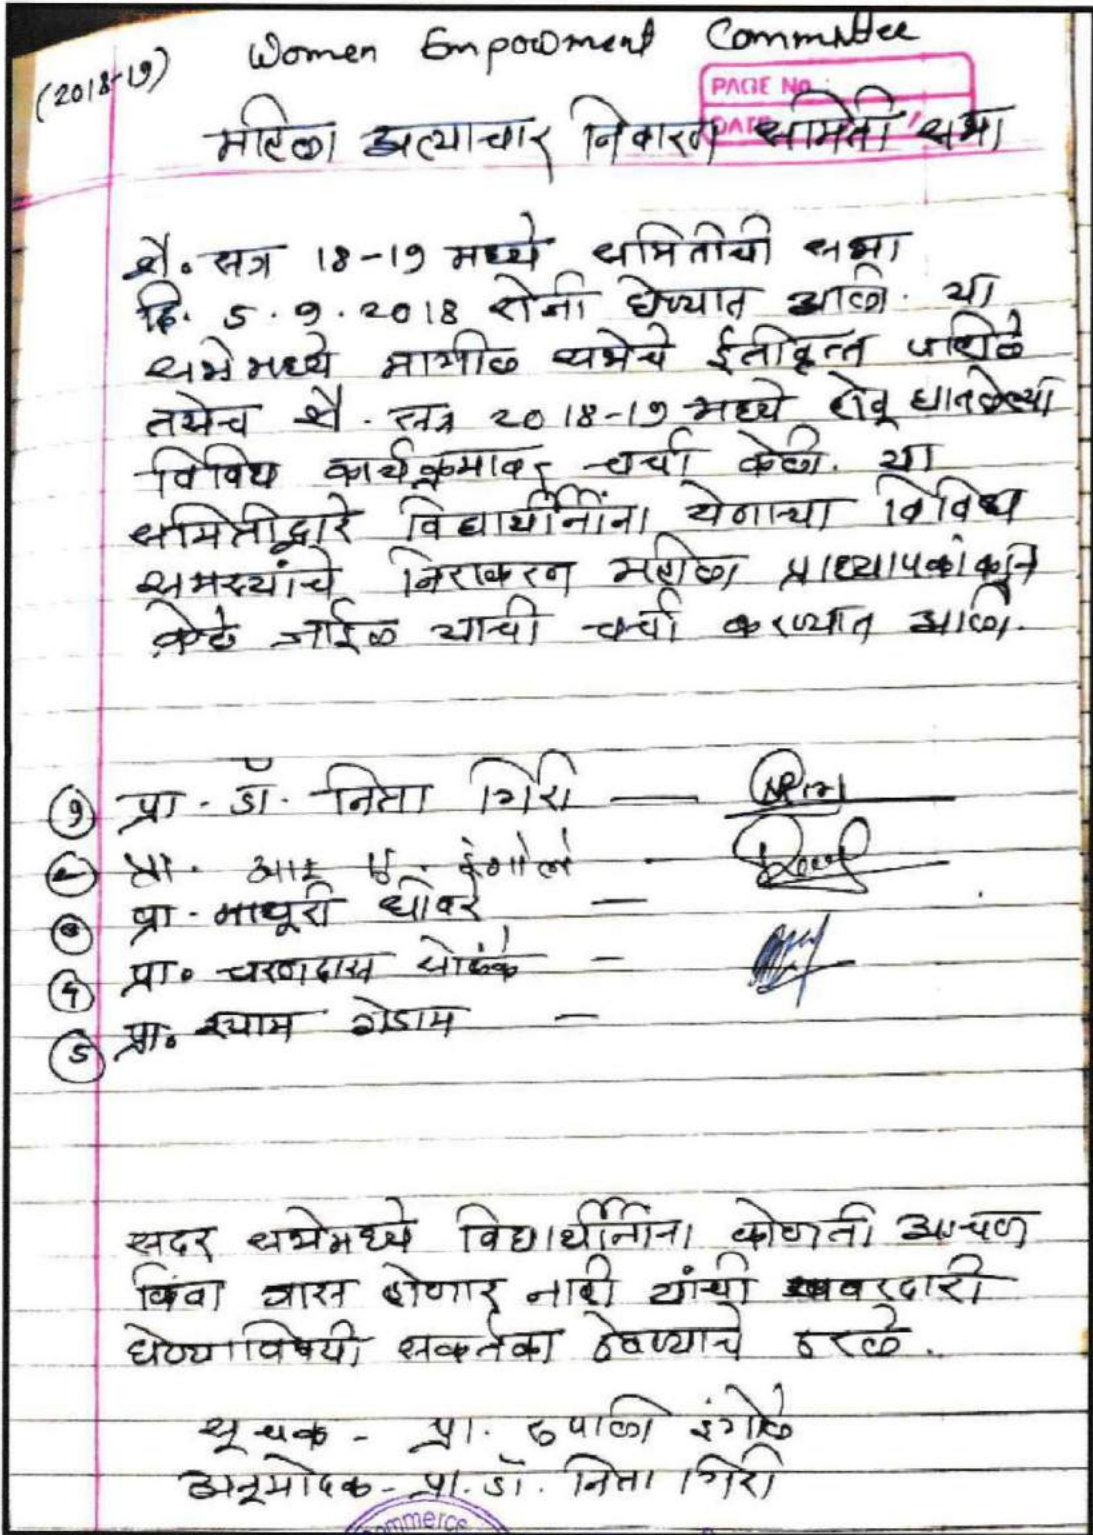 Women Empowment Committee
(2018-19)
PAGE No.
DATE
महिला अत्याचार निवारण समिती सभा
शै. सत्र 18-19 मध्ये समितीची सभा
दि. 5.9.2018 रोजी घेण्यात आली. या
सभेमध्ये मागील सभेचे ईतीवृत्त
तसेच शै. सत्र 2018-19 मध्ये होवू घातलेल्या
विविध कार्यक्रमावर चर्चा केली. या
समितीद्वारे विद्यार्थीनींना येणाऱ्या विविध
समस्यांचे निराकरन महीला प्राध्यापकांकडून
केले जाईल याची चर्चा करण्यात आली.
१ प्रा. डॉ. निता गिरी —
२ प्रा. आर ए. इंगोले -
३ प्रा. माधूरी धोवरे —
४ प्रा. चरणदास सोळंके -
5 प्रा. श्याम गेडाम —
सदर सभेमध्ये विद्यार्थीनींना कोणती अडचण
किंवा त्रास होणार नाही यांची खबरदारी
घेण्याविषयी सतर्कता ठेवण्याचे ठरले.
सूचक - प्रा. रुपाली इंगोले
अनूमोदक - प्रा. डॉ. निता गिरी
commerce